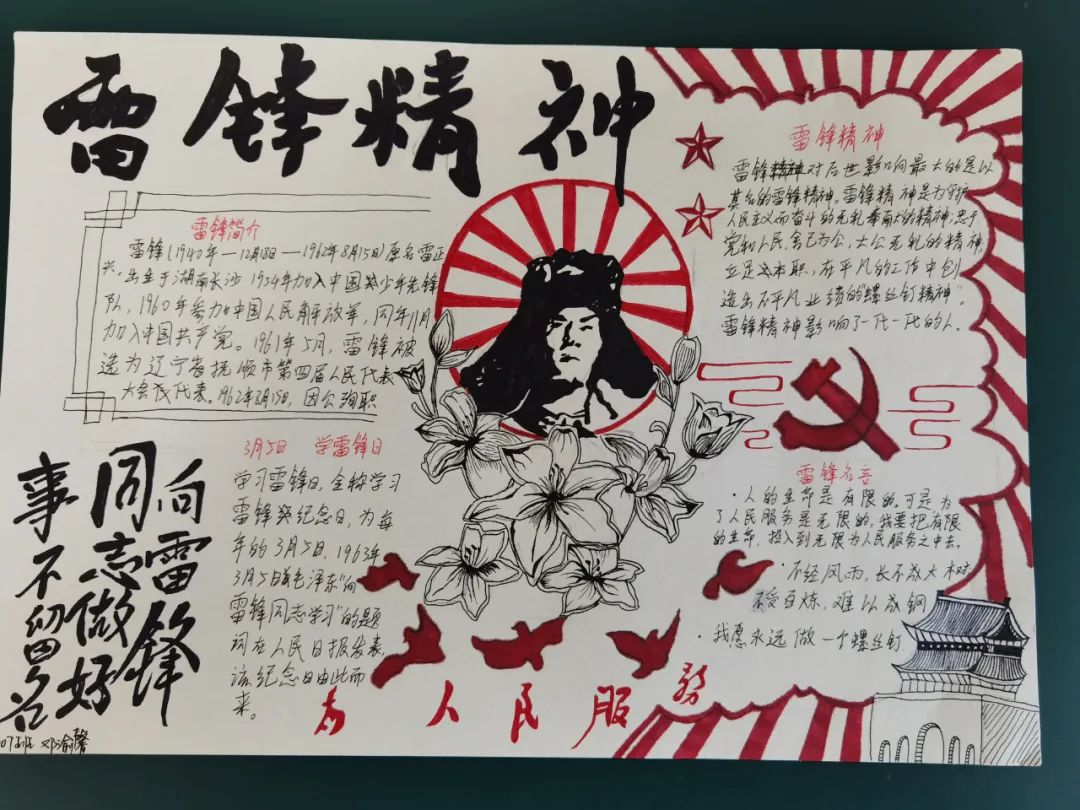 雷锋精神
雷锋简介
雷锋(1940年—12月18日—1962年8月15日)原名雷正
兴,出生于湖南长沙 1954年加入中国少年先锋
队,1960年参加中国人民解放军,同年11月
加入中国共产党。1961年5月,雷锋被
选为辽宁省抚顺市第四届人民代表
大会代表。1962年8月15日,因公殉职
3月5日 学雷锋日
学习雷锋日,全称学习
雷锋纪念日,为每
年的3月5日,1963年
3月5日毛泽东“向
雷锋同志学习”的题
词在人民日报发表,
该纪念日由此而
来。
向雷锋
同志做好
事不留名
07班 邓渝馨
雷锋精神
雷锋精神对后世影响最大的是以
其名的雷锋精神。雷锋精神是为
人民主义而奋斗的无私奉献的精神;忠于
党和人民,舍己为公,大公无私的精神,
立足本职,在平凡的工作中创
造出不平凡业绩的“螺丝钉精神”。
雷锋精神影响了一代一代的人。
雷锋名言
·人的生命是有限的,可是为
了人民服务是无限的,我要把有限
的生命,投入到无限为人民服务之中去。
·不经风雨,长不成大树
不受百炼,难以成钢
·我愿永远做一个螺丝钉
为人民服務